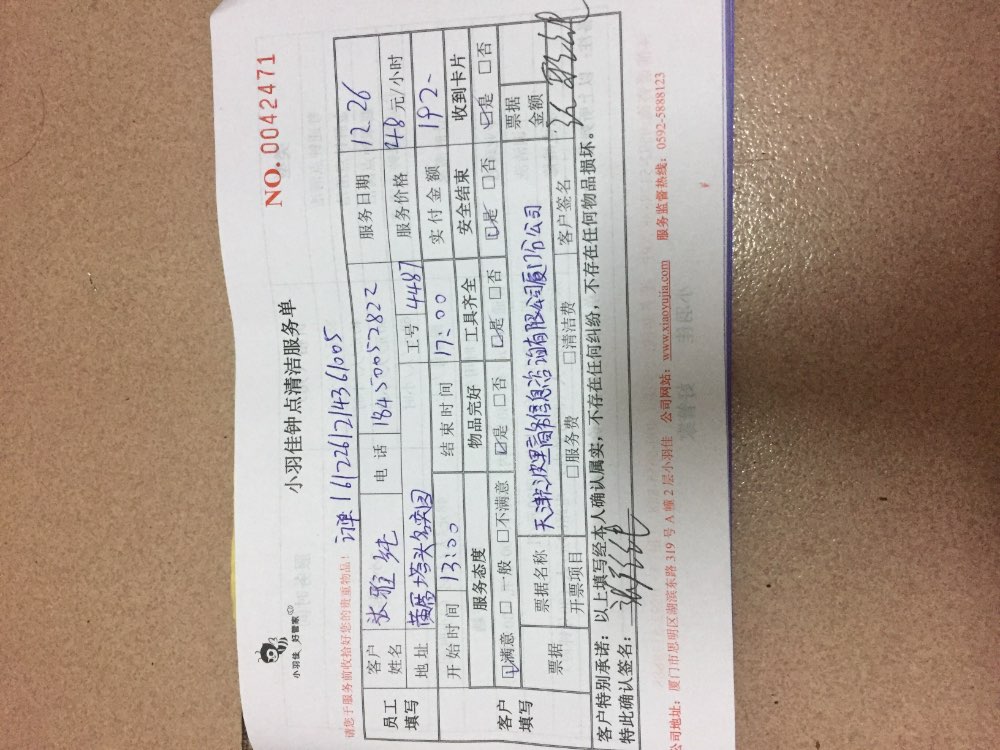 小羽佳 好管家
小羽佳钟点清洁服务单
NO. 0042471
请您于服务前收拾好您的贵重物品!
订单 161226121436 1005
员工填写
客户姓名 张雅纯 电话 18450052822 服务日期 12.26
地址 塔头 工号 4487 服务价格 48 元/小时
开始时间 13:00 结束时间 17:00 实付金额 192-
客户填写
服务态度 物品完好 工具齐全 安全结束 收到卡片
☑满意 □一般 □不满意 ☑是 □否 ☑是 □否 ☑是 □否 ☑是 □否
票据 票据名称 天津 商务信息咨询有限公司厦门分公司 票据金额
开票项目 □服务费 □清洁费 客户签名
客户特别承诺:以上填写经本人确认属实,不存在任何纠纷,不存在任何物品损坏。
特此确认签名:
公司地址:厦门市思明区湖滨东路 319 号 A 幢 2 层小羽佳 公司网站:www.xiaoyujia.com 服务监督热线:0592-5888123